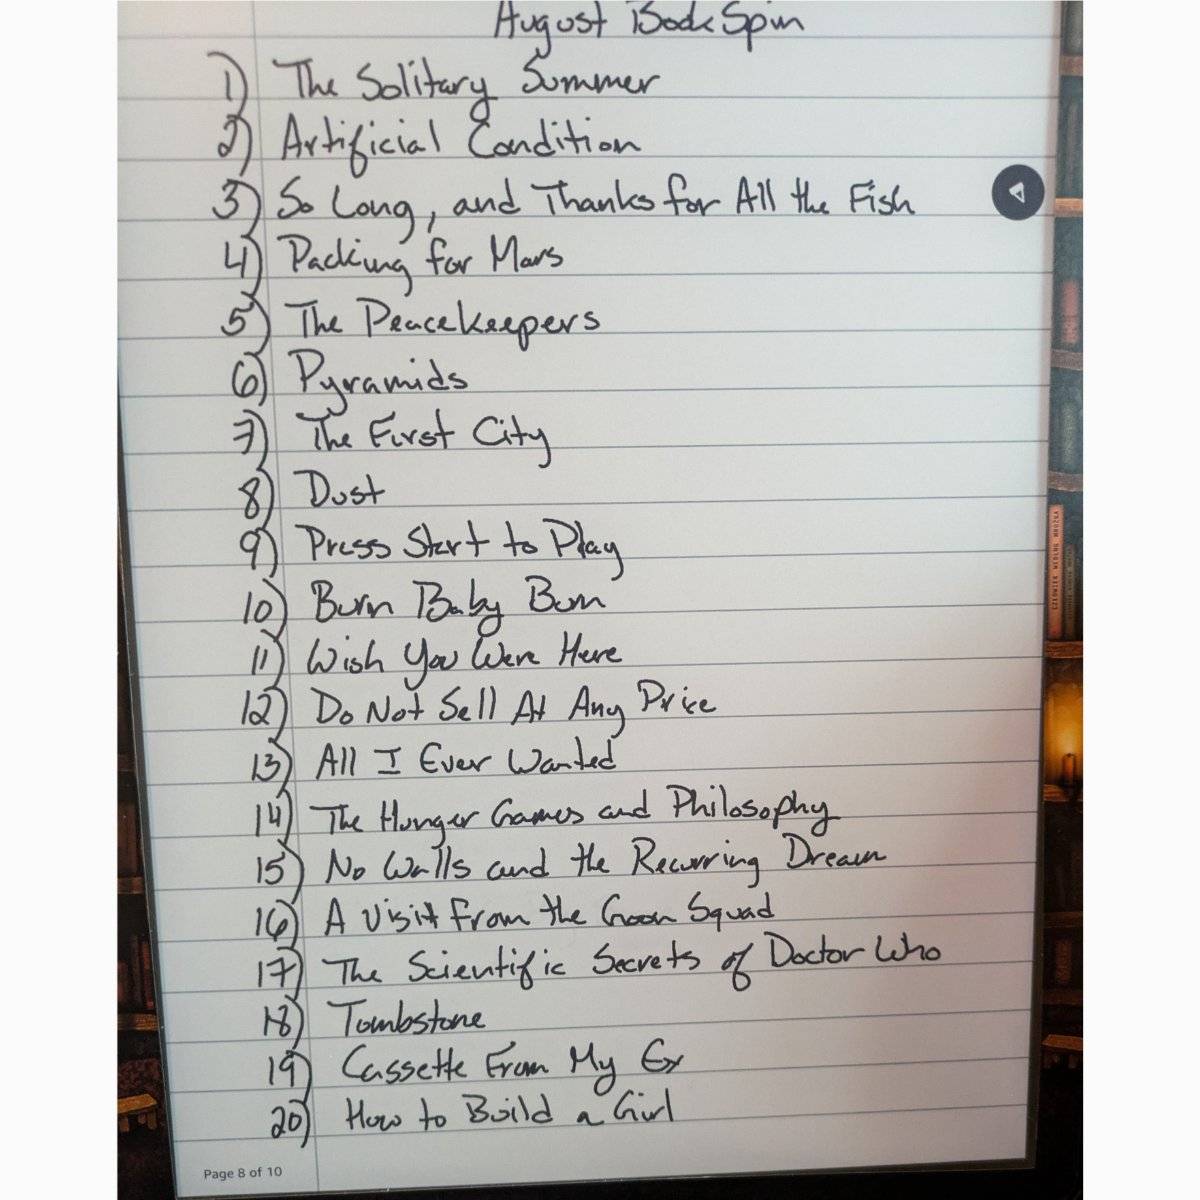 August BookSpin
1) The Solitary Summer
2) Artificial Condition
3) So Long, and Thanks for All the Fish
4) Packing for Mars
5) The Peacekeepers
6) Pyramids
7) The First City
8) Dust
9) Press Start to Play
10) Burn Baby Burn
11) Wish You Were Here
12) Do Not Sell At Any Price
13) All I Ever Wanted
14) The Hunger Games and Philosophy
15) No Walls and the Recurring Dream
16) A Visit From the Goon Squad
17) The Scientific Secrets of Doctor Who
18) Tombstone
19) Cassette From My Ex
20) How to Build a Girl
Page 8 of 10
CZŁOWIEK WEDŁUG